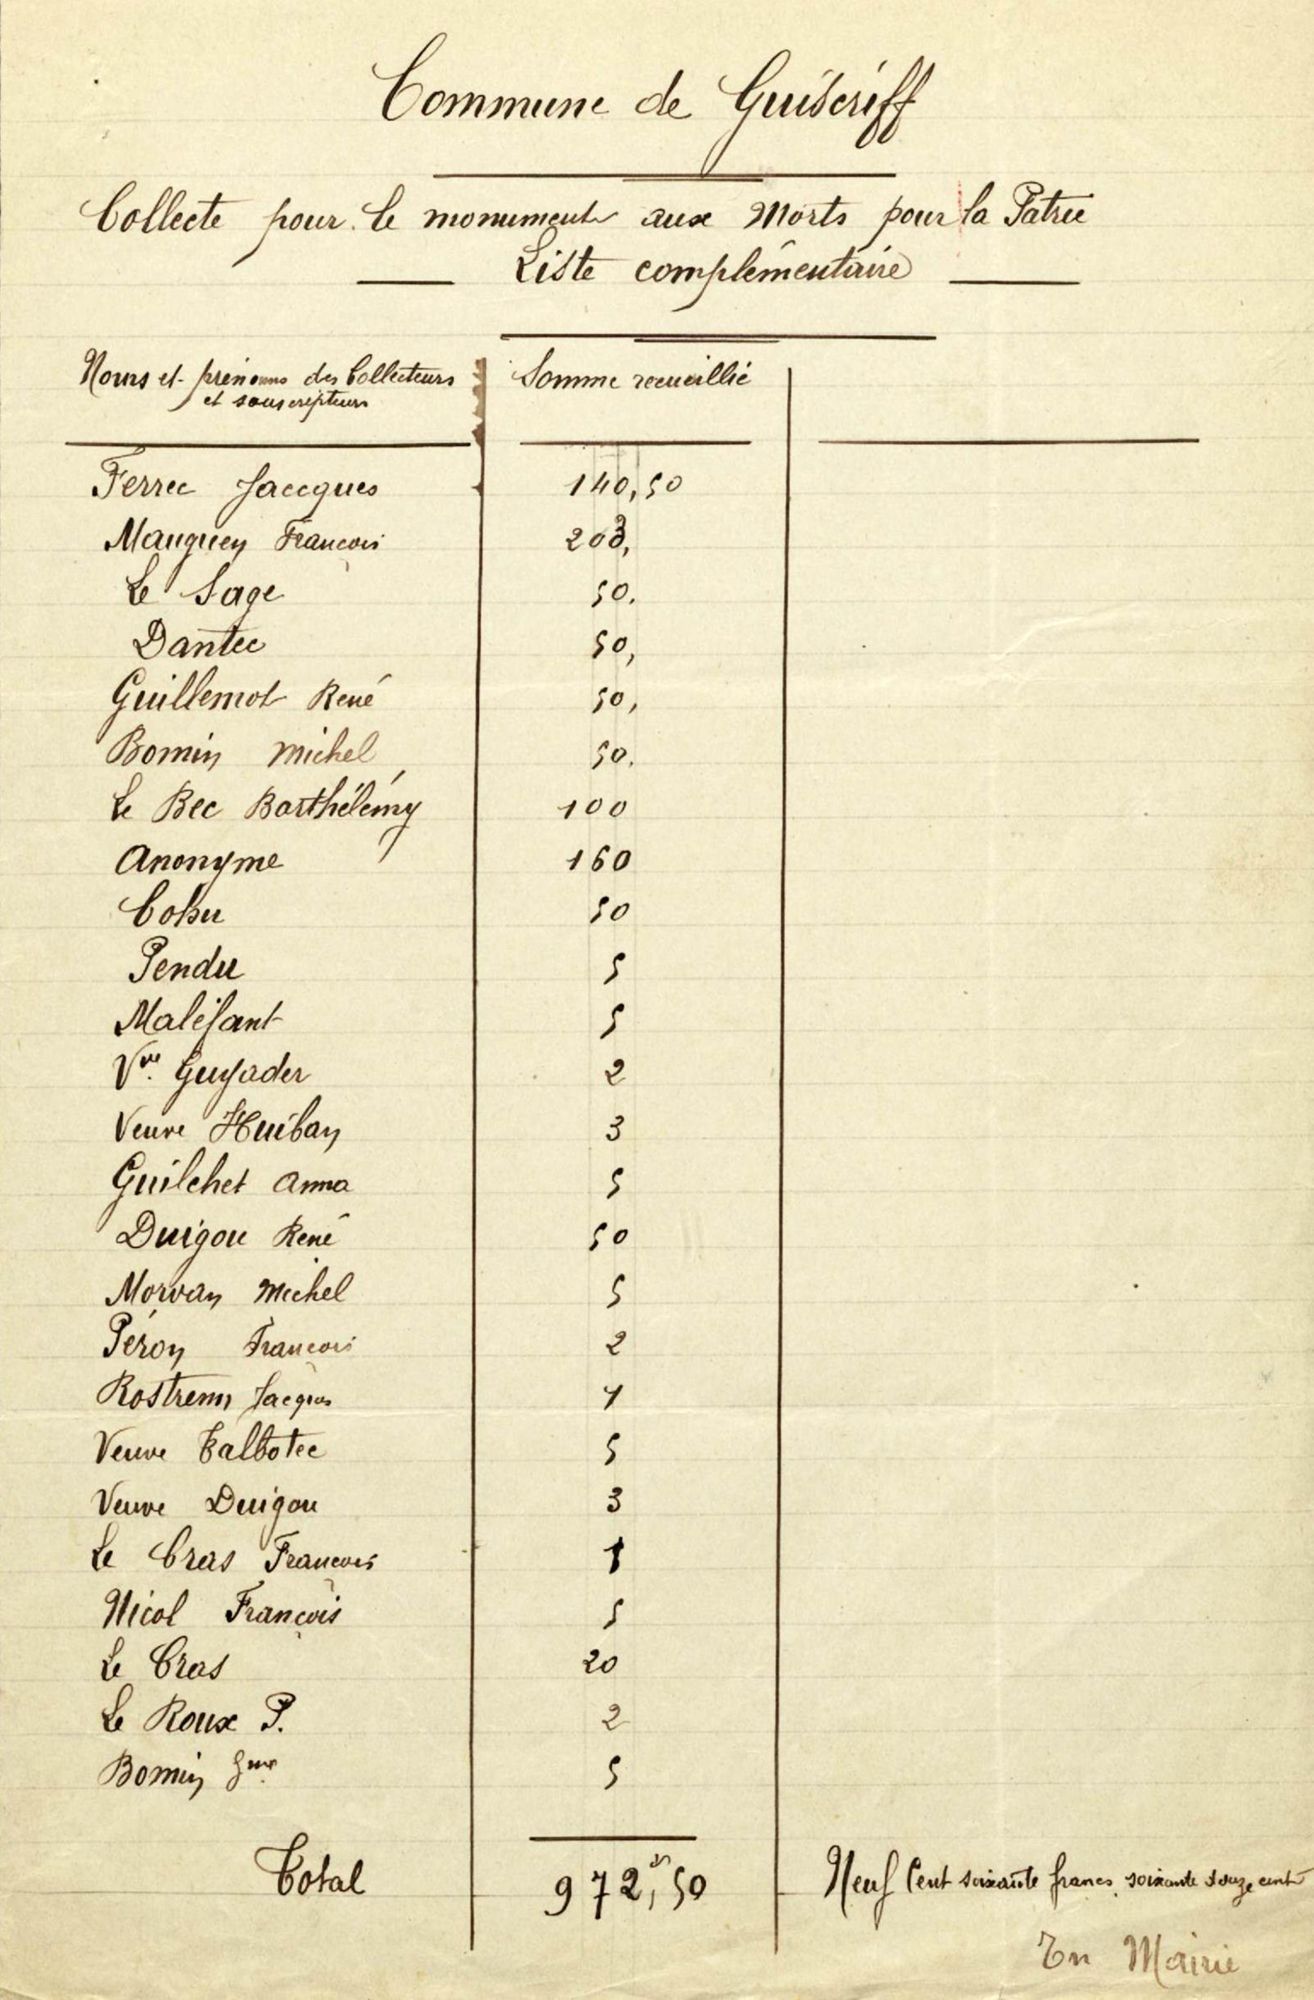 Commune de Guiscriff
Collecte pour le monument aux Morts pour la Patrie
Liste complémentaire
Noms et prénoms des Collecteurs
et souscripteurs
Somme recueillie
Ferrec Jaccques 140,50
Mauguen Francois 203,
Le Sage 50.
Dantec 50,
Guillemot René 50,
Bomin Michel 50.
Le Bec Barthélémy 100
Anonyme 160
Cohu 50
Pendu 5
Maléfant 5
Vve Guyader 2
Veuve Huiban 3
Guilchet Anna 5
Duigou René 50
Morvan Michel 5
Péron Francois 2
Rostrenn Jacques 1
Veuve Talbotec 5
Veuve Duigou 3
Le Cras Francois 1
Nicol François 5
Le Cras 20
Le Roux P. 2
Bomin 5
Total 972,50 Neuf Cent soixante francs soixante douze cent
En Mairie